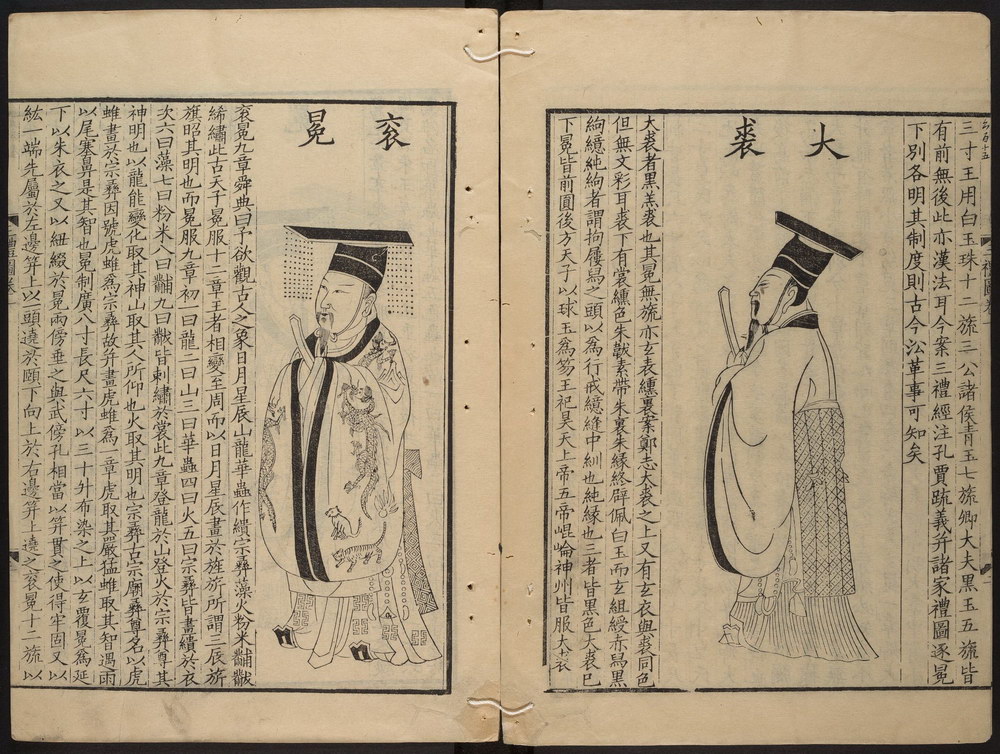 三寸王用白玉珠十二旒三公諸侯青玉七旒卿大夫黑玉五旒皆
有前無後此亦漢法耳今案三禮經注孔賈疏義并諸家禮圖逐冕
下別各明其制度則古今沿革事可知矣
大裘
大裘者黑羔裘也其冕無旒亦玄表纁裏案鄭志大裘之上又有玄衣與裘同色
但無文彩耳裘下有裳纁色朱韍素帶朱裏朱緣終辟佩白玉而玄組綬赤舄黑
絇繶純絇者謂拘屨舄之頭以為行戒繶縫中紃也純緣也三者皆黑色大裘已
下冕皆前圓後方天子以球玉為笏王祀昊天上帝五帝崐崘神州皆服大裘
袞冕
袞冕九章舜典曰予欲觀古人之象日月星辰山龍華蟲作繢宗彝藻火粉米黼黻
絺繡此古天子冕服十二章王者相變至周而以日月星辰畫於旌旂所謂三辰旂
旗昭其明也而冕服九章初一曰龍二曰山三曰華蟲四曰火五曰宗彝皆畫繢於衣
次六曰藻七曰粉米八曰黼九曰黻皆刺繡於裳此九章登龍於山登火於宗彝尊其
神明也以龍能變化取其神山取其人所仰也火取其明也宗彝古宗廟彝尊名以虎
蜼畫於宗彝因號虎蜼為宗彝故并畫虎蜼為一章虎取其嚴猛蜼取其智遇雨
以尾塞鼻是其智也冕制廣八寸長尺六寸以三十升布染之上以玄覆冕為延
下以朱衣之又以紐綴於冕兩傍垂之與武傍孔相當以笄貫之使得牢固又以
紘一端先屬於左邊笄上以頭遶於頤下向上於右邊笄上遶之袞冕十二旒以